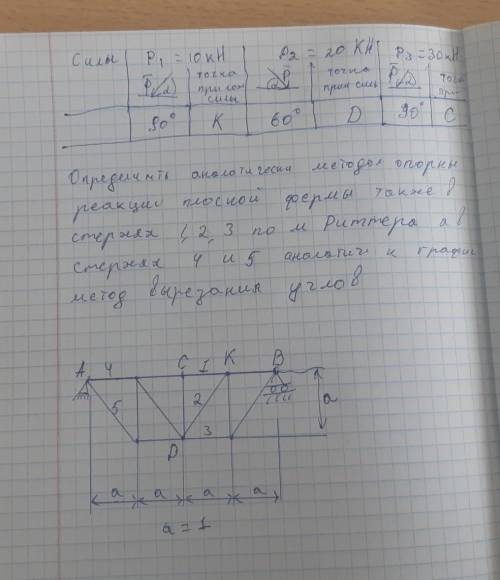 Силы P₁ = 10кН P₂ = 20 КН P₃ = 30кН
P̄ α точка прилож силы α P̄ точка прил силы P̄ α точ прил
90° К 60° D 90° C
Определить аналотически методом опорны
реакции плоской фермы также в
стержях 1, 2, 3 по м Риттера а в
стержях 4 и 5 аналотич и график
метод вырезания углов
A 4 C 1 K B
5 2 a
D 3
a a a a
a = 1